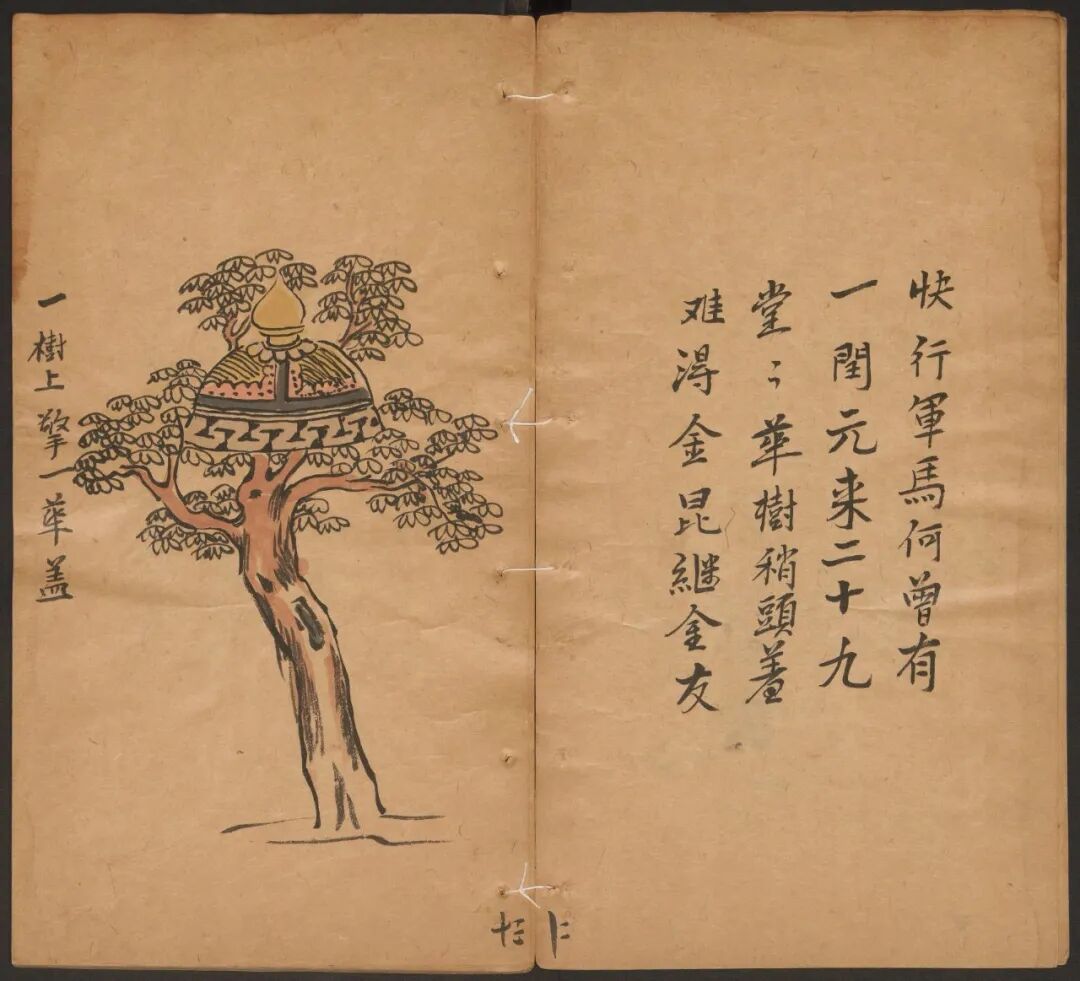 快行軍馬何曾有
一閏元来二十九
堂〻華樹稍頭盖
难淂金昆継金友
一樹上擎一華盖